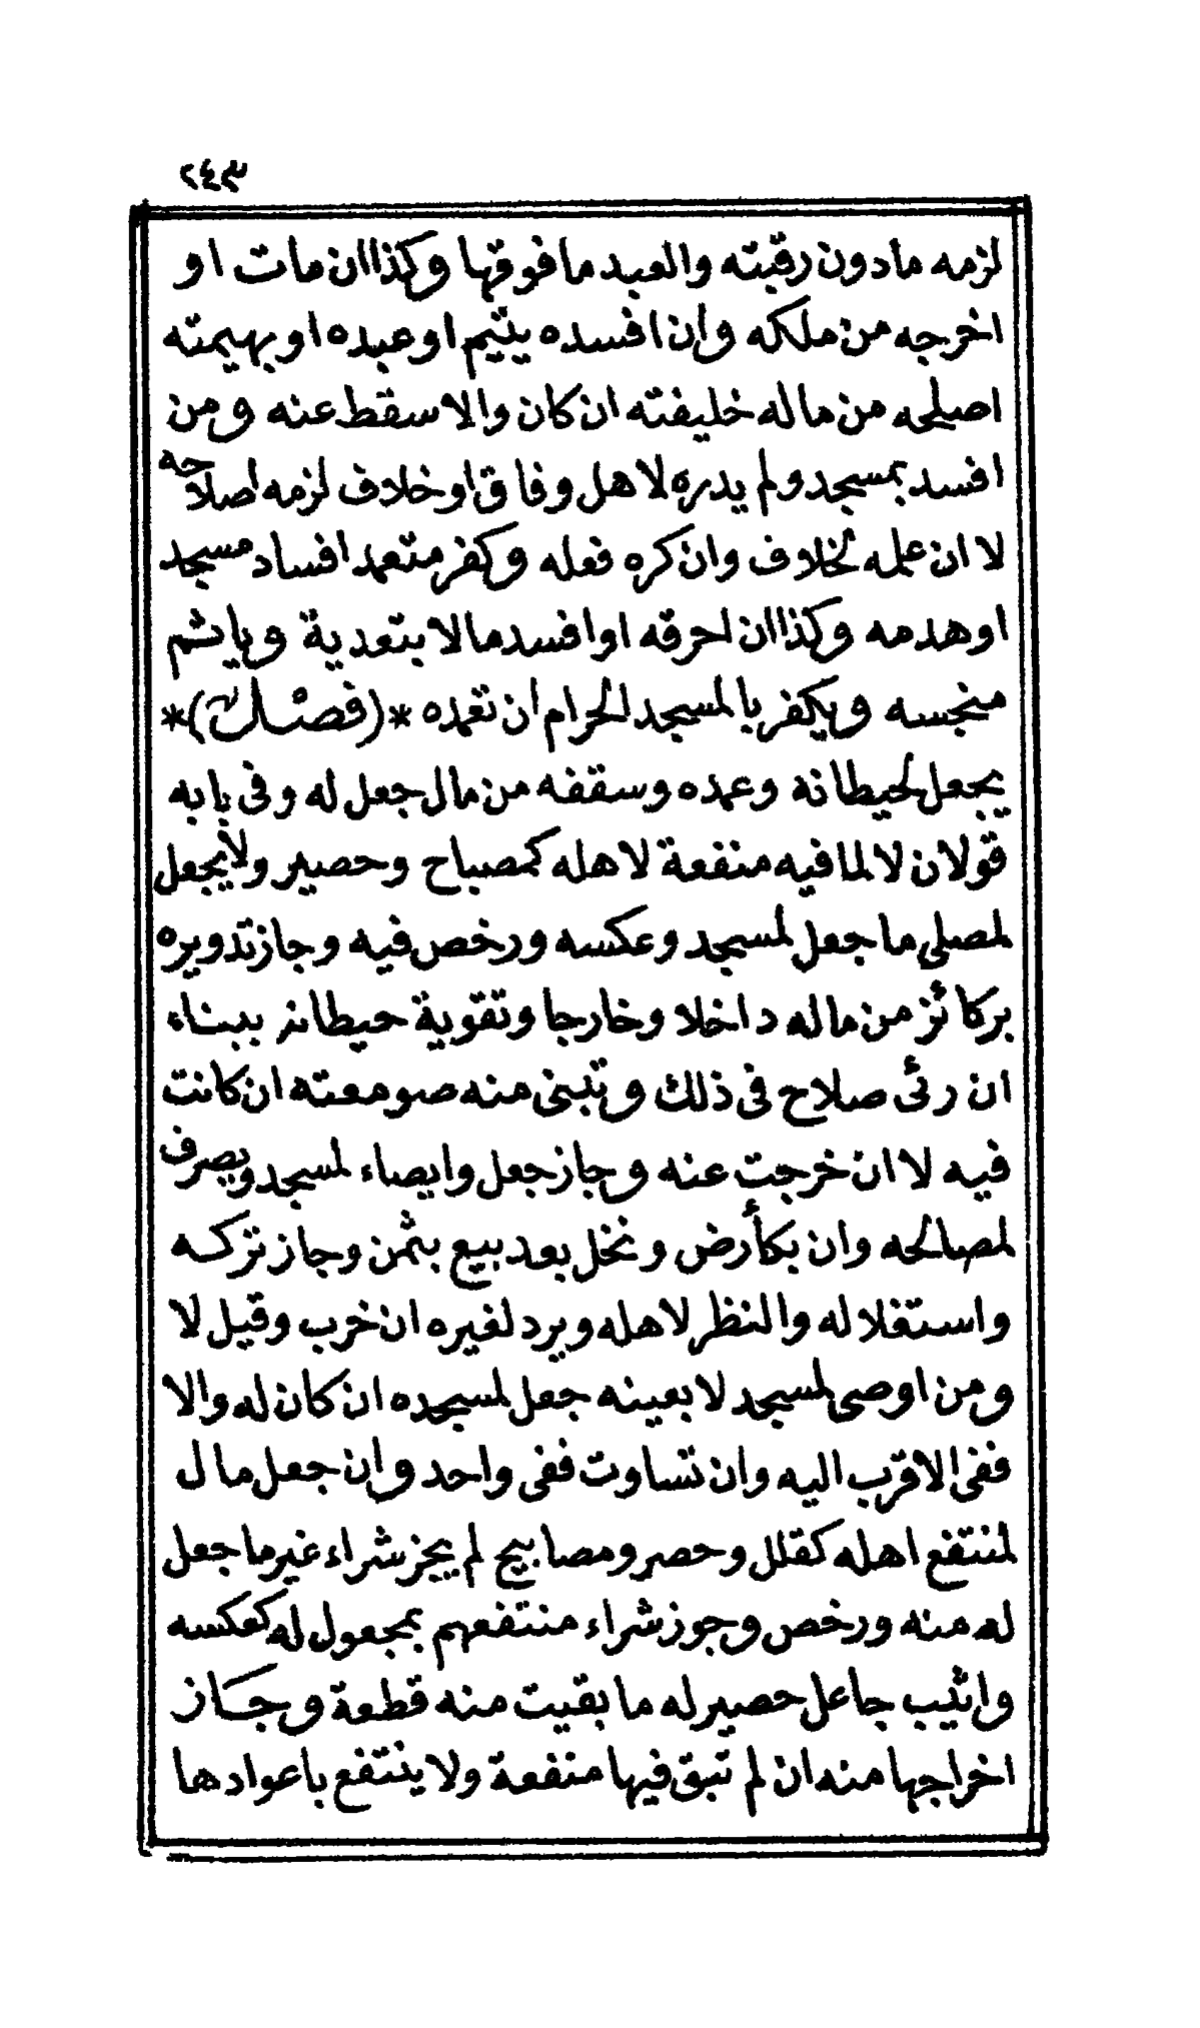 ٢٤٣
لزمه مادون رقبته والعبد ما فوقها وكذا ان مات او
اخرجه من ملكه وان افسده يتيم او عبده او بهيمته
اصلحه من ماله خليفته ان كان والا سقط عنه ومن
افسد بمسجد ولم يدره لاهل وفاق او خلاف لزمه اصلاحه
لا ان عمله لخلاف وان كره فعله وكفر متعمد افساد مسجد
او هدمه وكذا ان احرقه او افسد مالا بتعدية وياثم
منجسه ويكفر بالمسجد الحرام ان تعمده *(فصل)*
يجعل لحيطانه وعمده وسقفه من مال جعل له وفى بابه
قولان لا لما فيه منفعة لاهله كمصباح وحصير ولا يجعل
لمصلى ما جعل لمسجد وعكسه ورخص فيه وجاز تدويره
بركائز من ماله داخلا وخارجا وتقوية حيطانه ببناء
ان رئى صلاح فى ذلك وتبنى منه صومعته ان كانت
فيه لا ان خرجت عنه وجاز جعل وايصاء لمسجد ويصرف
لمصالحه وان بكأرض ونخل بعد بيع بثمن وجاز تركه
واستغلاله والنظر لاهله ويرد لغيره ان خرب وقيل لا
ومن اوصى لمسجد لا بعينه جعل لمسجده ان كان له والا
ففى الاقرب اليه وان تساوت ففى واحد وان جعل مال
لمنتفع اهله كقلل وحصر ومصابيح لم يجز شراء غير ما جعل
له منه ورخص وجوز شراء منتفعهم بمجعول له كعكسه
واثيب جاعل حصير له ما بقيت منه قطعة وجاز
اخراجها منه ان لم تبق فيها منفعة ولا ينتفع باعوادها